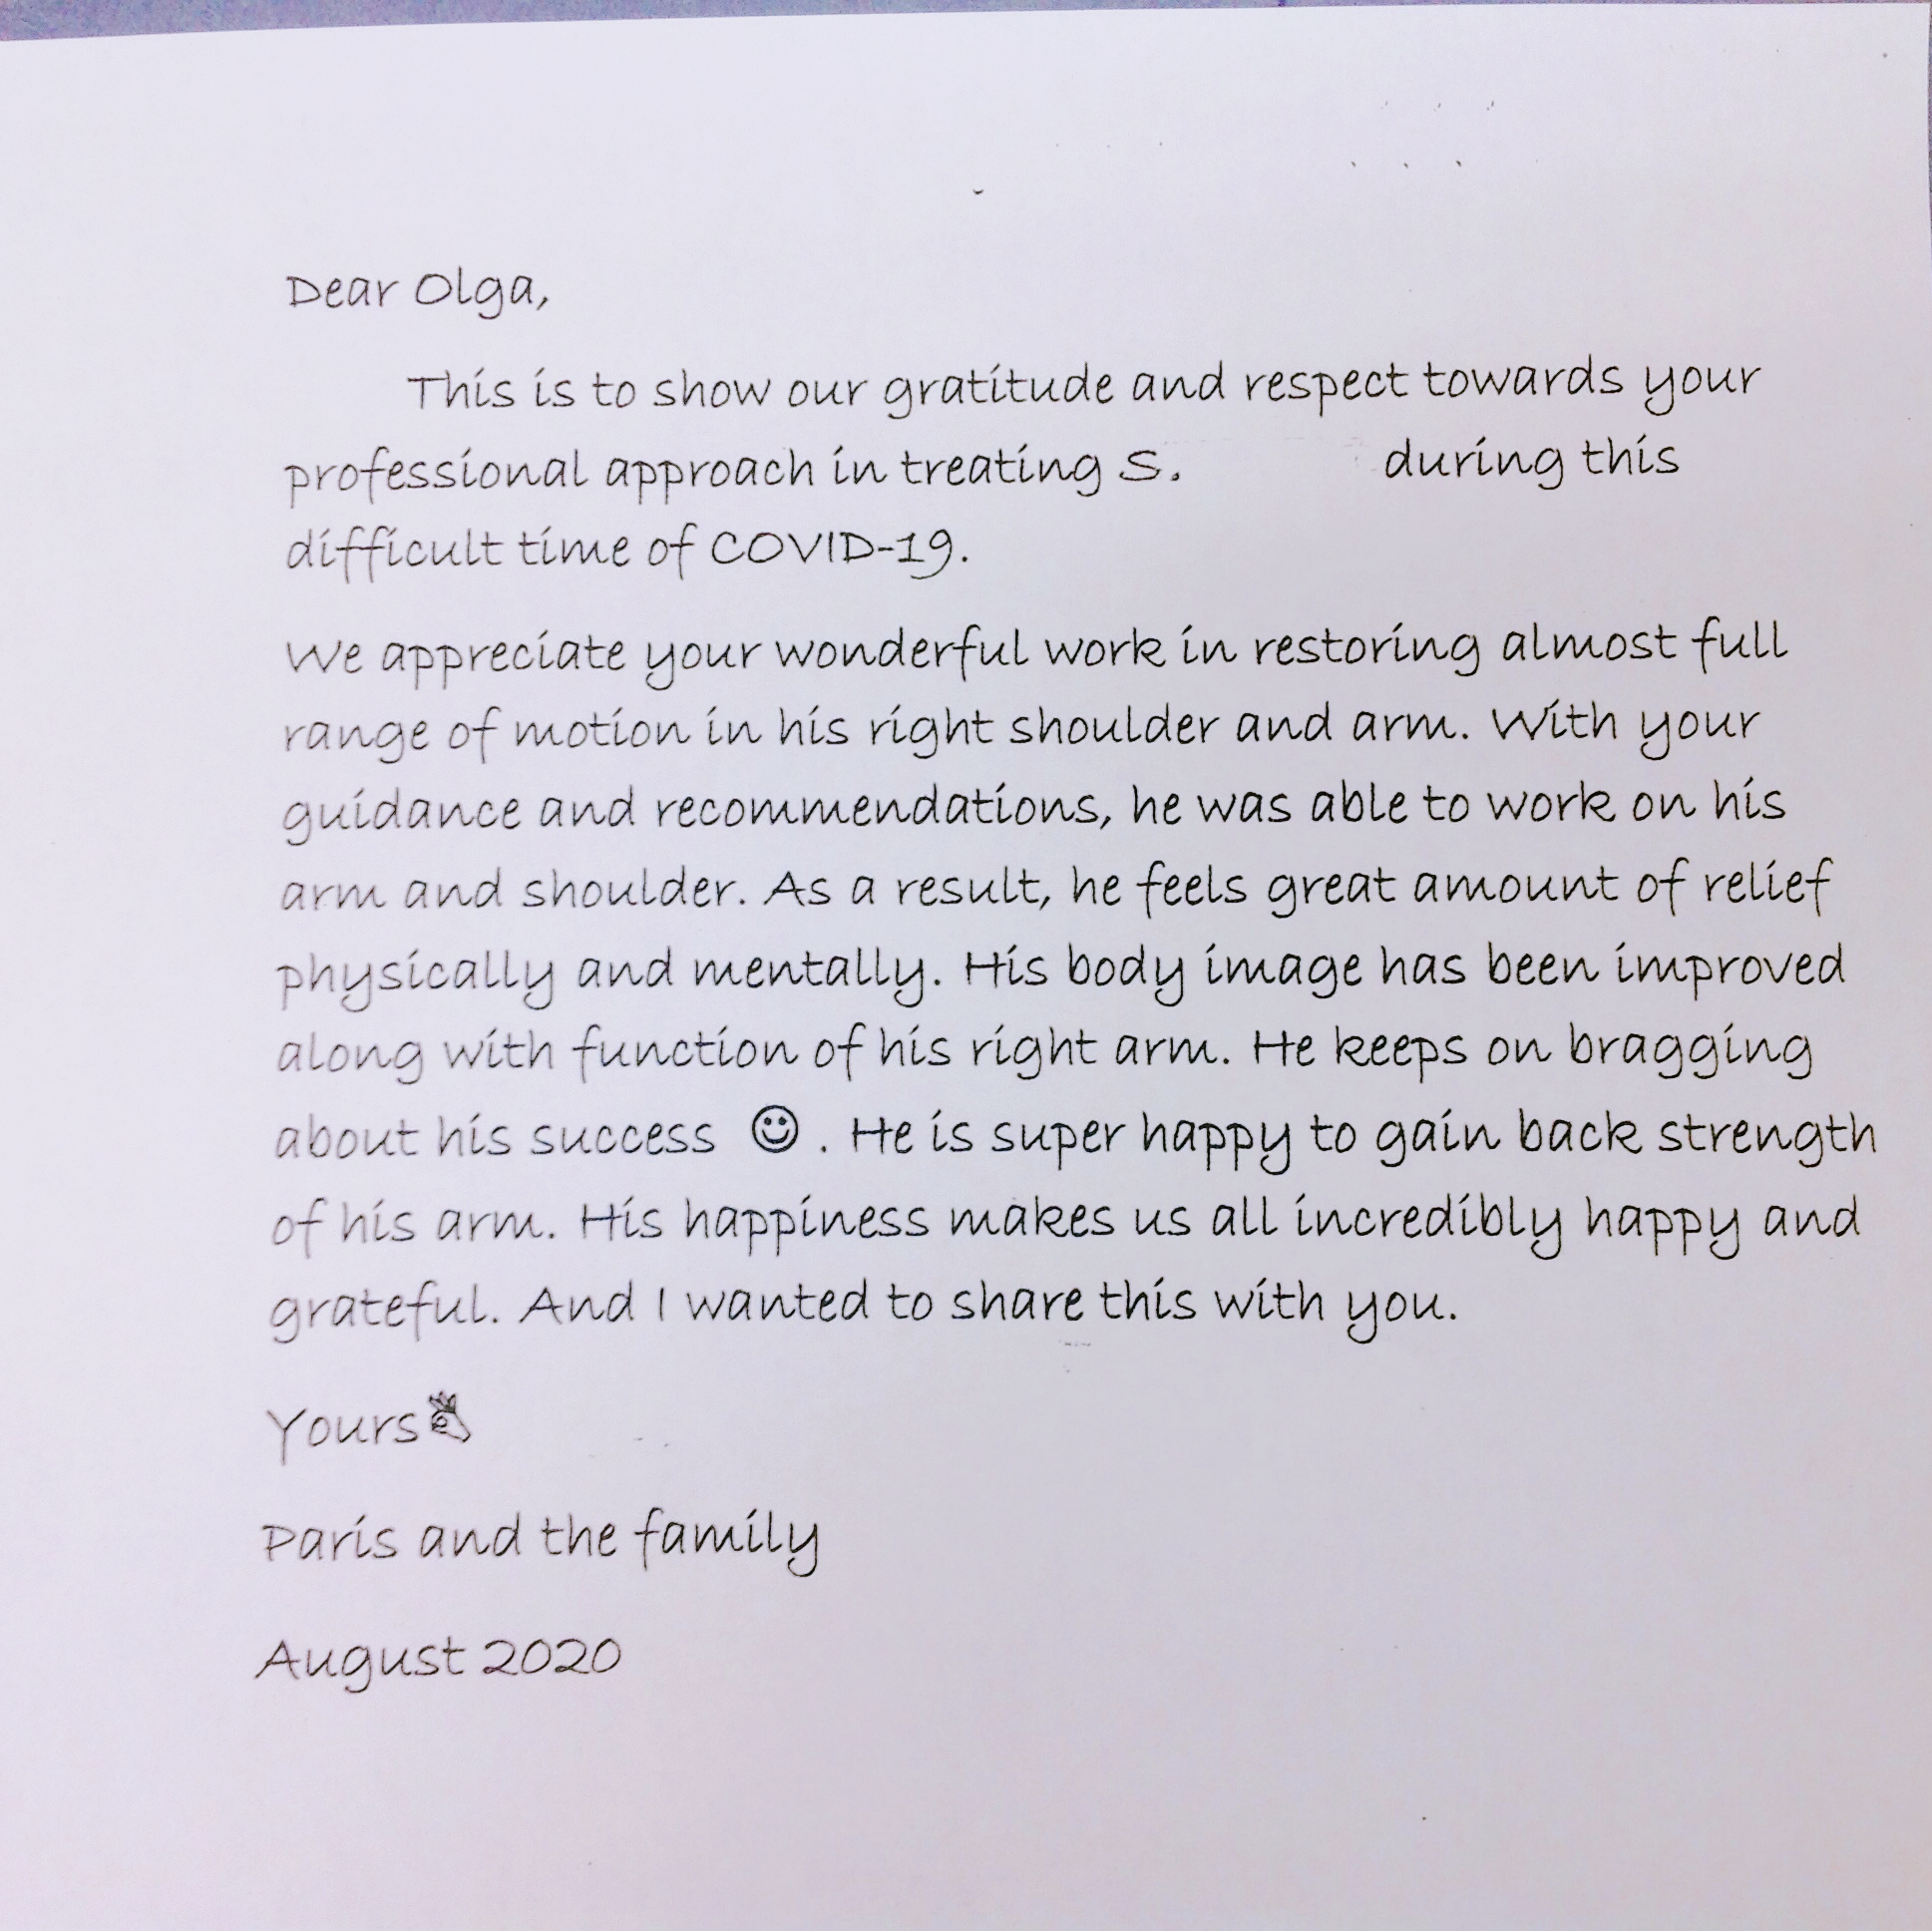 Dear Olga,
This is to show our gratitude and respect towards your
professional approach in treating S. during this
difficult time of COVID-19.
We appreciate your wonderful work in restoring almost full
range of motion in his right shoulder and arm. With your
guidance and recommendations, he was able to work on his
arm and shoulder. As a result, he feels great amount of relief
physically and mentally. His body image has been improved
along with function of his right arm. He keeps on bragging
about his success ☺ . He is super happy to gain back strength
of his arm. His happiness makes us all incredibly happy and
grateful. And I wanted to share this with you.
Yours
Paris and the family
August 2020